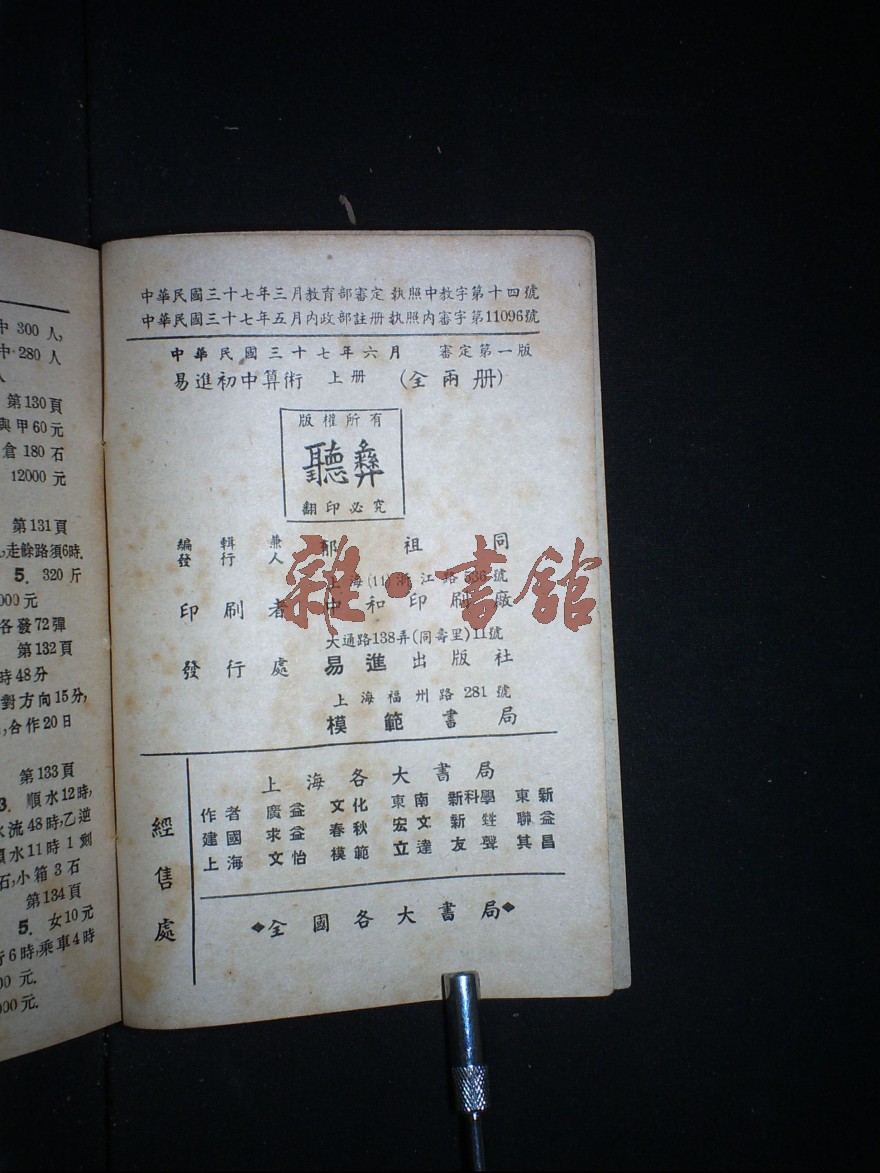 中華民國三十七年三月教育部審定 執照中教字第十四號
中華民國三十七年五月內政部註册 執照內審字第11096號
中華民國三十七年六月 審定第一版
易進初中算術 上册 (全兩册)
版權所有
聽彝
翻印必究
編輯兼
發行人
祖同
上海(11)浙江路536號
印刷者 中和印刷廠
大通路138弄(同壽里)11號
發行處 易進出版社
上海福州路281號
模範書局
經售處
上海各大書局
作者 廣益 文化 東南 新科學 東新
建國 求益 春秋 宏文 新甡 聯益
上海 文怡 模範 立達 友聲 其昌
◆全國各大書局◆
雜·書館
中 300 人,
中 280 人
人
第130頁
與甲60元
倉 180 石
12000 元
第131頁
,走餘路須6時.
5. 320 斤
000元
各發72彈
第132頁
時48分
對方向15分,
,合作20日
第133頁
3. 順水12時,
水流48時,乙逆
順水11時1刻
石,小箱3石
第134頁
5. 女10元
行6時,乘車4時
00 元.
000元.